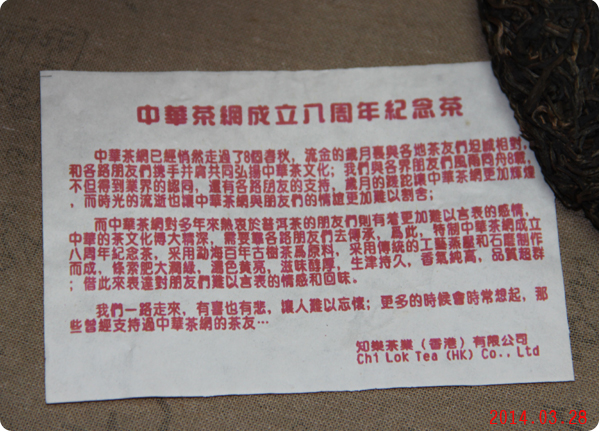 中華茶網成立八周年紀念茶
中華茶網已經悄然走過了8個春秋，流金的歲月裏與各地茶友們坦誠相對，
和各路朋友們攜手并肩共同弘揚中華茶文化；我們與各界朋友們風雨同舟8載，
不但得到業界的認同，還有各路朋友的支持，歲月的蹉跎讓中華茶網更加輝煌
，而時光的流逝也讓中華茶網與朋友們的情誼更加難以割舍；
而中華茶網對多年來熱衷於普洱茶的朋友們則有着更加難以言表的感情，
中華的茶文化得大精深，需要靠各路朋友們去傳承，爲此，特制中華茶網成立
八周年紀念茶，采用勐海百年古樹茶爲原料，采用傳統的工藝蒸壓和石磨制作
而成，條索肥大潤綠，湯色黃亮，滋味醇厚，生津持久，香氣純高，品質超群
；借此來表達對朋友們難以言表的情感和回味。
我們一路走來，有喜也有悲，讓人難以忘懷；更多的時候會時常想起，那
些曾經支持過中華茶網的茶友…
知樂茶業（香港）有限公司
Chi Lok Tea (HK) Co., Ltd
2014.03.28